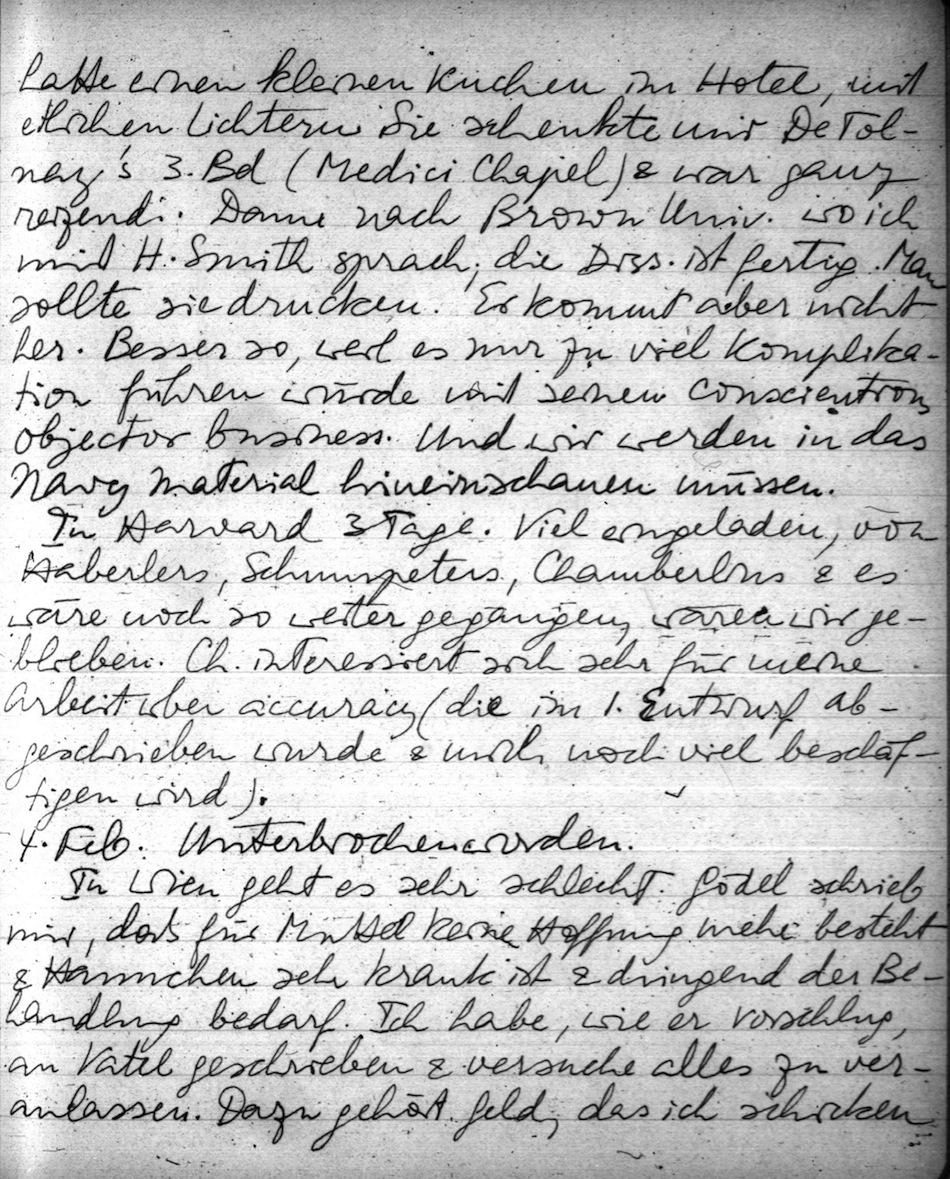 hatte einen kleinen Kuchen im Hotel, mit
etlichen Lichtern. Sie schenkte mir De Tol-
nay's 3. Bd (Medici Chapel) & war ganz
reizend. Dann nach Brown Univ. wo ich
mit H. Smith sprach; die Diss. ist fertig. Man
sollte sie drucken. Er kommt aber nicht
her. Besser so, weil es nur zu viel Komplika-
tion führen würde mit seinem conscientious
objector business. Und wir werden in das
Navy material hineinschauen müssen.
In Harvard 3 Tage. Viel eingeladen, von
Haberlers, Schumpeters, Chamberlins & es
wäre noch so weiter gegangen, wären wir ge-
blieben. Ch. interessiert sich sehr für meine
Arbeit über accuracy (die im 1. Entwurf ab-
geschrieben wurde & mich noch viel beschäf-
tigen wird).
4. Feb. Unterbrochen worden.
In Wien geht es sehr schlecht. Gödel schrieb
mir, dass für Muttel keine Hoffnung mehr besteht
& Hannchen sehr krank ist & dringend der Be-
handlung bedarf. Ich habe, wie er vorschlug,
an Vatel geschrieben & versuche alles zu ver-
anlassen. Dazu gehört Geld, das ich schicken